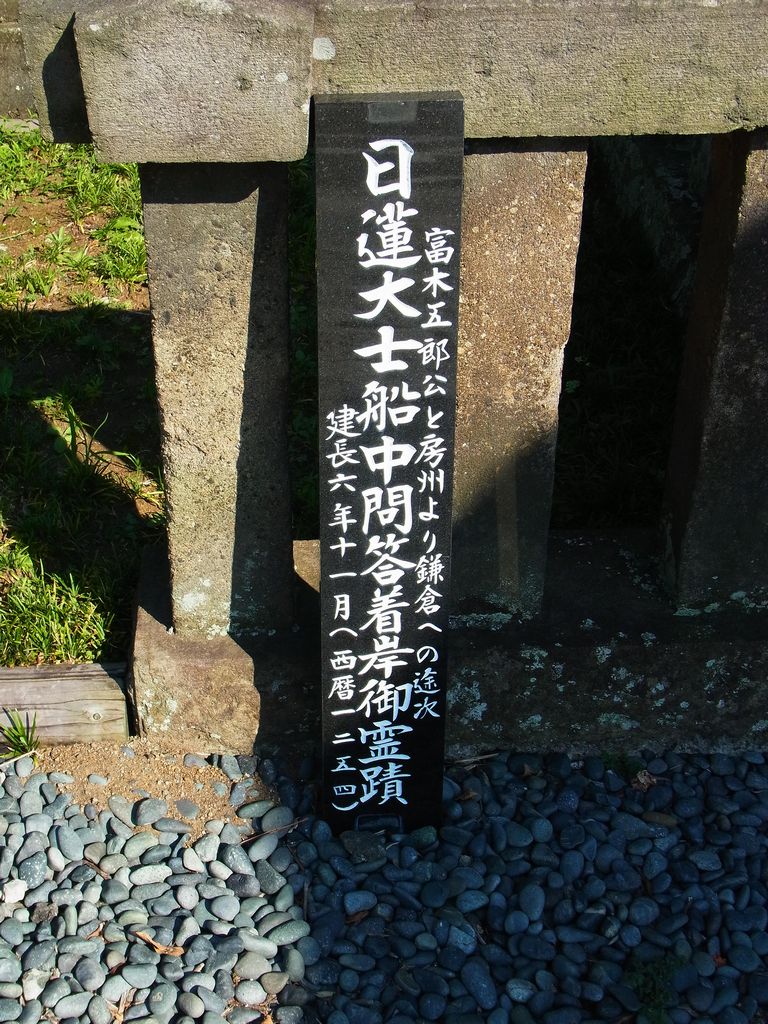 富木五郎公と房州より鎌倉への途次
日蓮大士船中問答着岸御霊蹟
建長六年十一月（西暦一二五四）